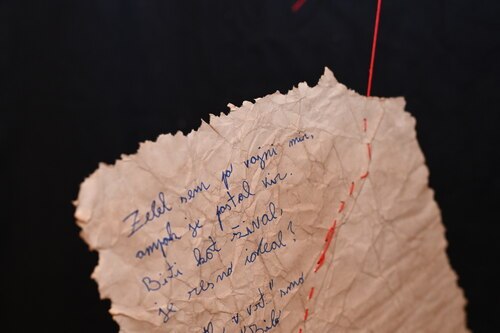 Želel sem po vojni mir,
ampak je postal vir.
Biti kot žival,
je resno ideal?
"Bili smo